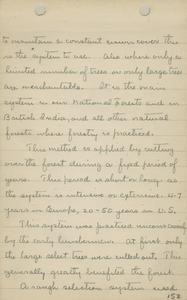 to maintain a constant crown cover this
is the system to use. Also where only a
limited number of trees or only large trees
are merchantable. It is the main
system in our National Forests and in
British India, and all other natural
forests where forestry is practiced.
This method is applied by cutting
over the forest during a fixed period of
years. This period is short or long as
the system is intensive or extensive. 4-7
years in Europe, 20-50 years in U.S.
This system was practiced unconsciously
by the early lumbermen. At first only
the large select trees were culled out. This
generally greatly benefited the forest.
A rough selection system used
158